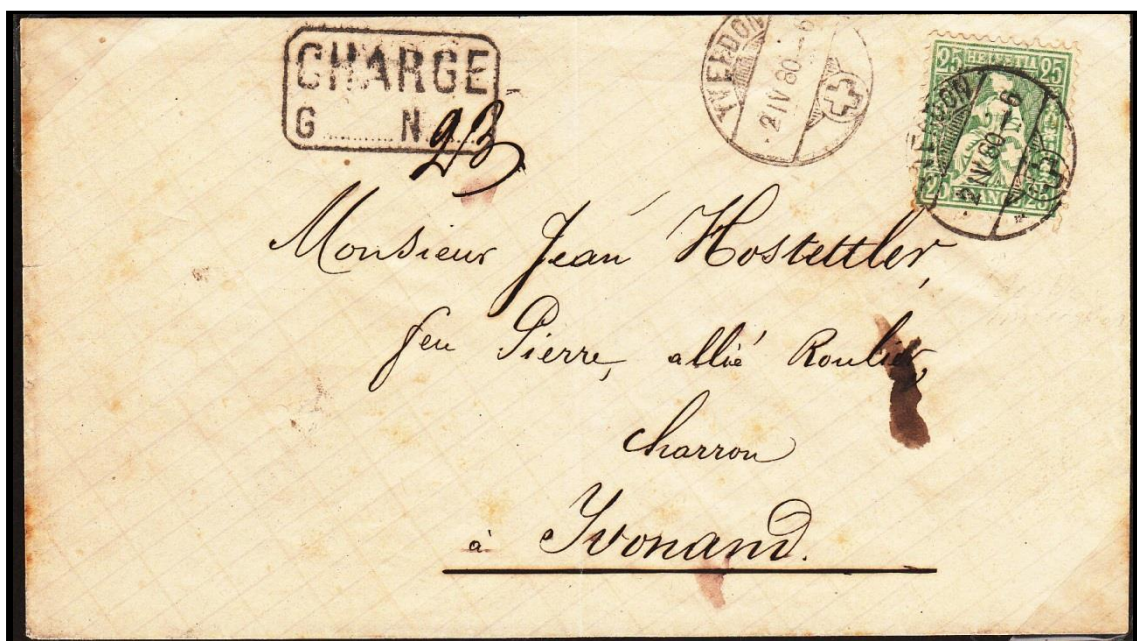 CHARGÉ
G N
23
YVERDON
2 IV 80 - 6
25 HELVETIA 25
YVERDON
2 IV 80 - 6
25 FRANCO 25
Monsieur Jean Hostettler,
feu Pierre, allié Roulier,
charron
à Yvonand.